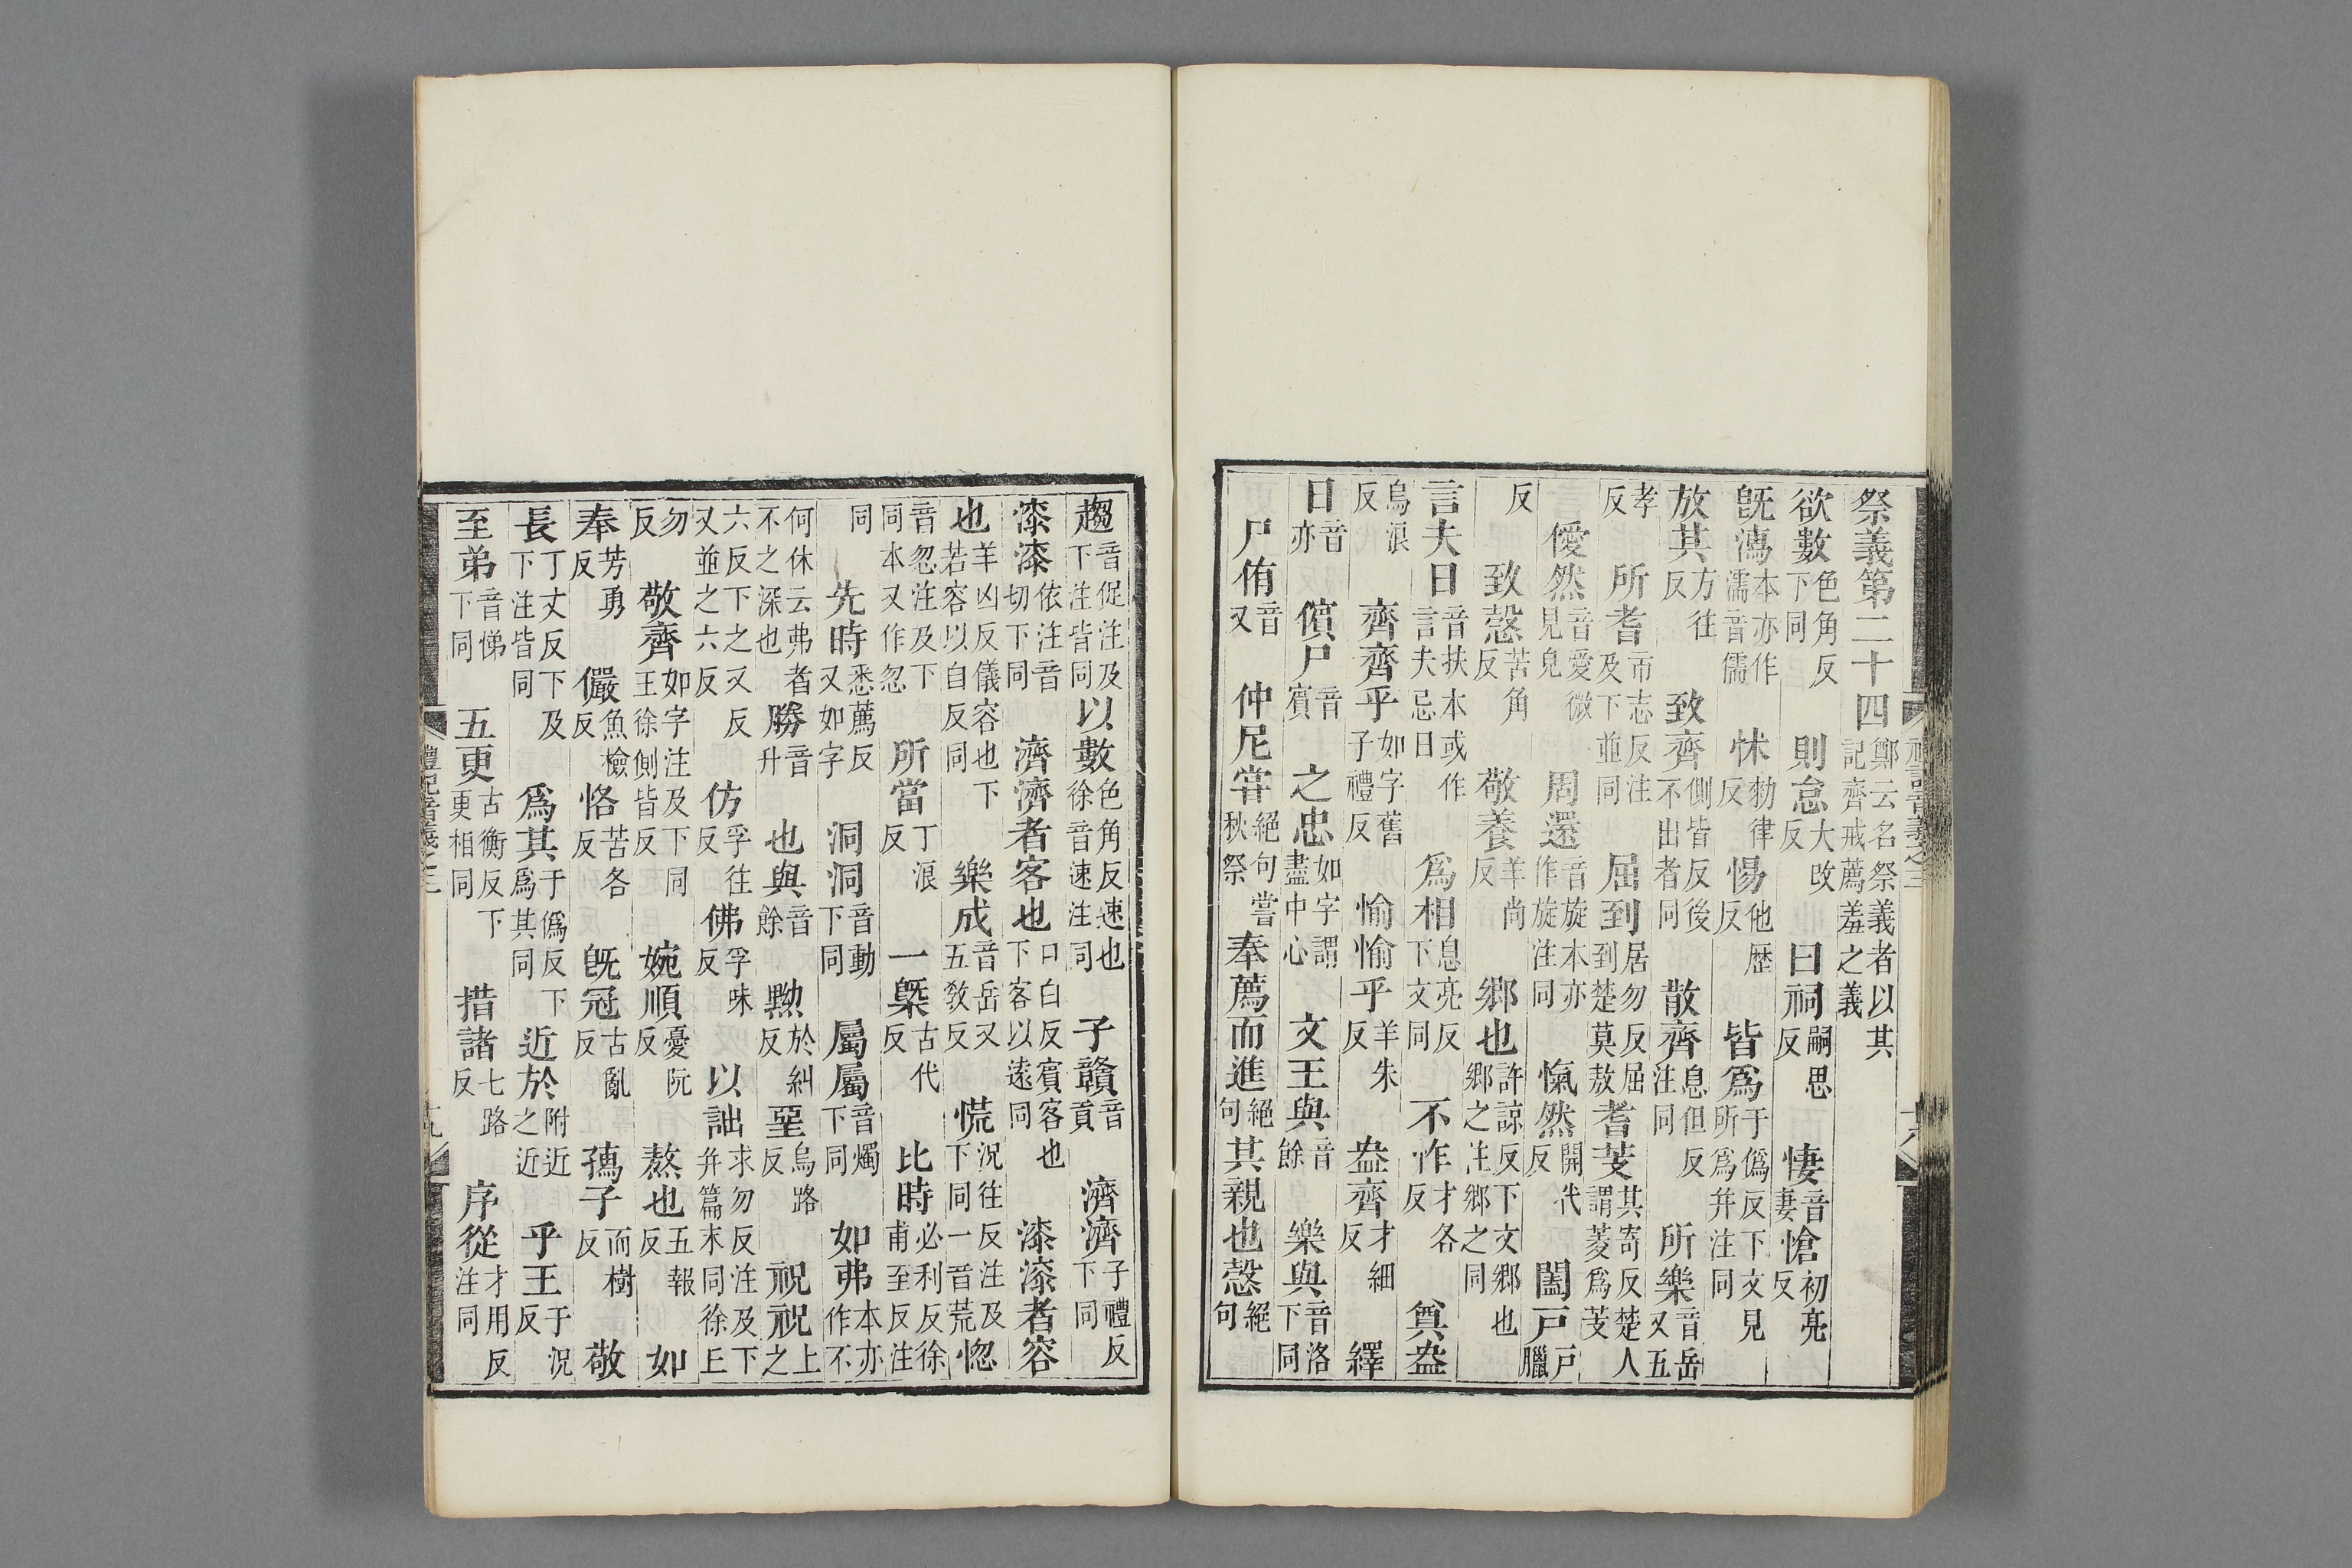 祭義第二十四鄭云名祭義者以其記齊戒薦羞之義
欲數色角反下同 則怠大改反 曰祠嗣思反 悽音妻愴初亮反
既濡本亦作濡音儒 怵勑律反 惕他歷反 皆爲于僞反下文見所爲并注同
放其方往反 致齊側皆反後不出者同 散齊息但反注同 所樂音岳又五
孝反 所耆市志反注及下並同 屈到居勿反屈到楚莫敖耆芰其寄反楚人謂菱爲芰
僾然音愛微見皃 周還音旋本亦作旋注同 愾然開代反 闔戸戸臘
反 致愨苦角反 敬養羊尚反 鄉也許諒反下文鄉也鄉之注鄉之同
言夫日音扶本或作言夫忌日 爲相息亮反下文同 不怍才各反 奠盎
烏浪反 齊齊乎如字舊子禮反 愉愉乎羊朱反 盎齊才細反 繹
日音亦 儐尸音賓 之忠如字謂盡中心 文王與音餘 樂與音洛下同
尸侑音又 仲尼甞絕句嘗秋祭奉薦而進絕句其親也愨絕句
趨音促注及下注皆同以數色角反速也徐音速注同 子贛音貢 濟濟子禮反下同
漆漆依注音切下同 濟濟者客也口白反賓客也下客以遠同 漆漆者容
也羊凶反儀容也下若容以自反同 樂成音岳又五敎反 慌況往反注及下同一音荒惚
音忽注及下同本又作忽 所當丁浪反 一槩古代反 比時必利反徐甫至反注
同 先時悉薦反又如字 洞洞音動下同 屬屬音燭下同 如弗本亦作不
何休云弗者不之深也勝音升 也與音餘 黝於糾反堊烏路反 祝祝上之
六反下之又反又並之六反 仿孚往反 佛孚味反 以詘求勿反注及下并篇末同徐丘
勿反 敬齊如字注及下同王徐側皆反 婉順憂阮反 敖也五報反 如
奉芳勇反 儼魚檢反 恪苦各反 既冠古亂反 孺子而樹反 敬
長丁丈反下及下注皆同 爲其于僞反下爲其同 近於附近之近 乎王于況反
至弟音悌下同 五更古衡反下更相同 措諸七路反 序從才用反注同
禮記音義之三
十九